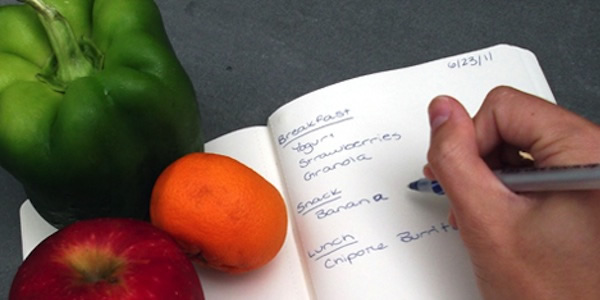 6/23/11
Breakfast
Yogurt
Strawberries
Granola
Snack
Banana
Lunch
Chipotle Burrito